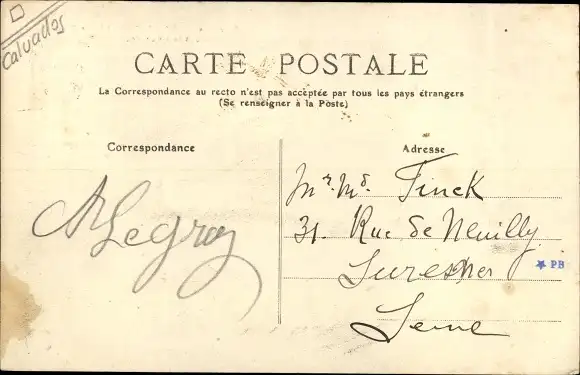 Calvados
CARTE POSTALE
La Correspondance au recto n'est pas acceptée par tous les pays étrangers
(Se renseigner à la Poste)
Correspondance
Adresse
Mr. Md. Finck
31. Rue de Neuilly
Suresnes
PB
Seine
A Legray